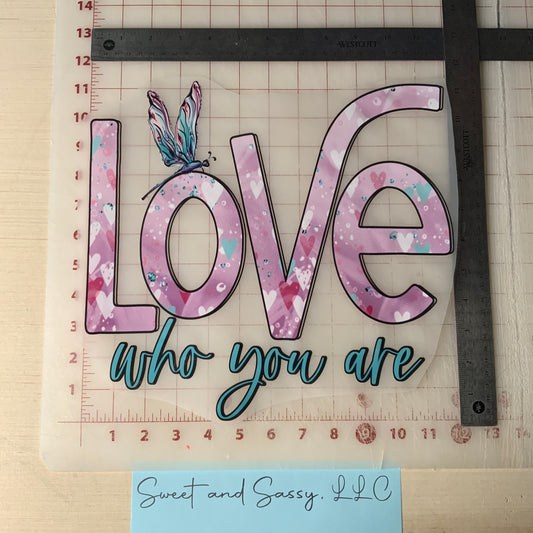 14
13
12
11
10
9
8
7
6
5
4
3
2
1
WESTCOTT
WESTCOTT
LOVe
who you are
1 2 3 4 5 6 7 8 9 10 11 12 13 14
Sweet and Sassy, LLC